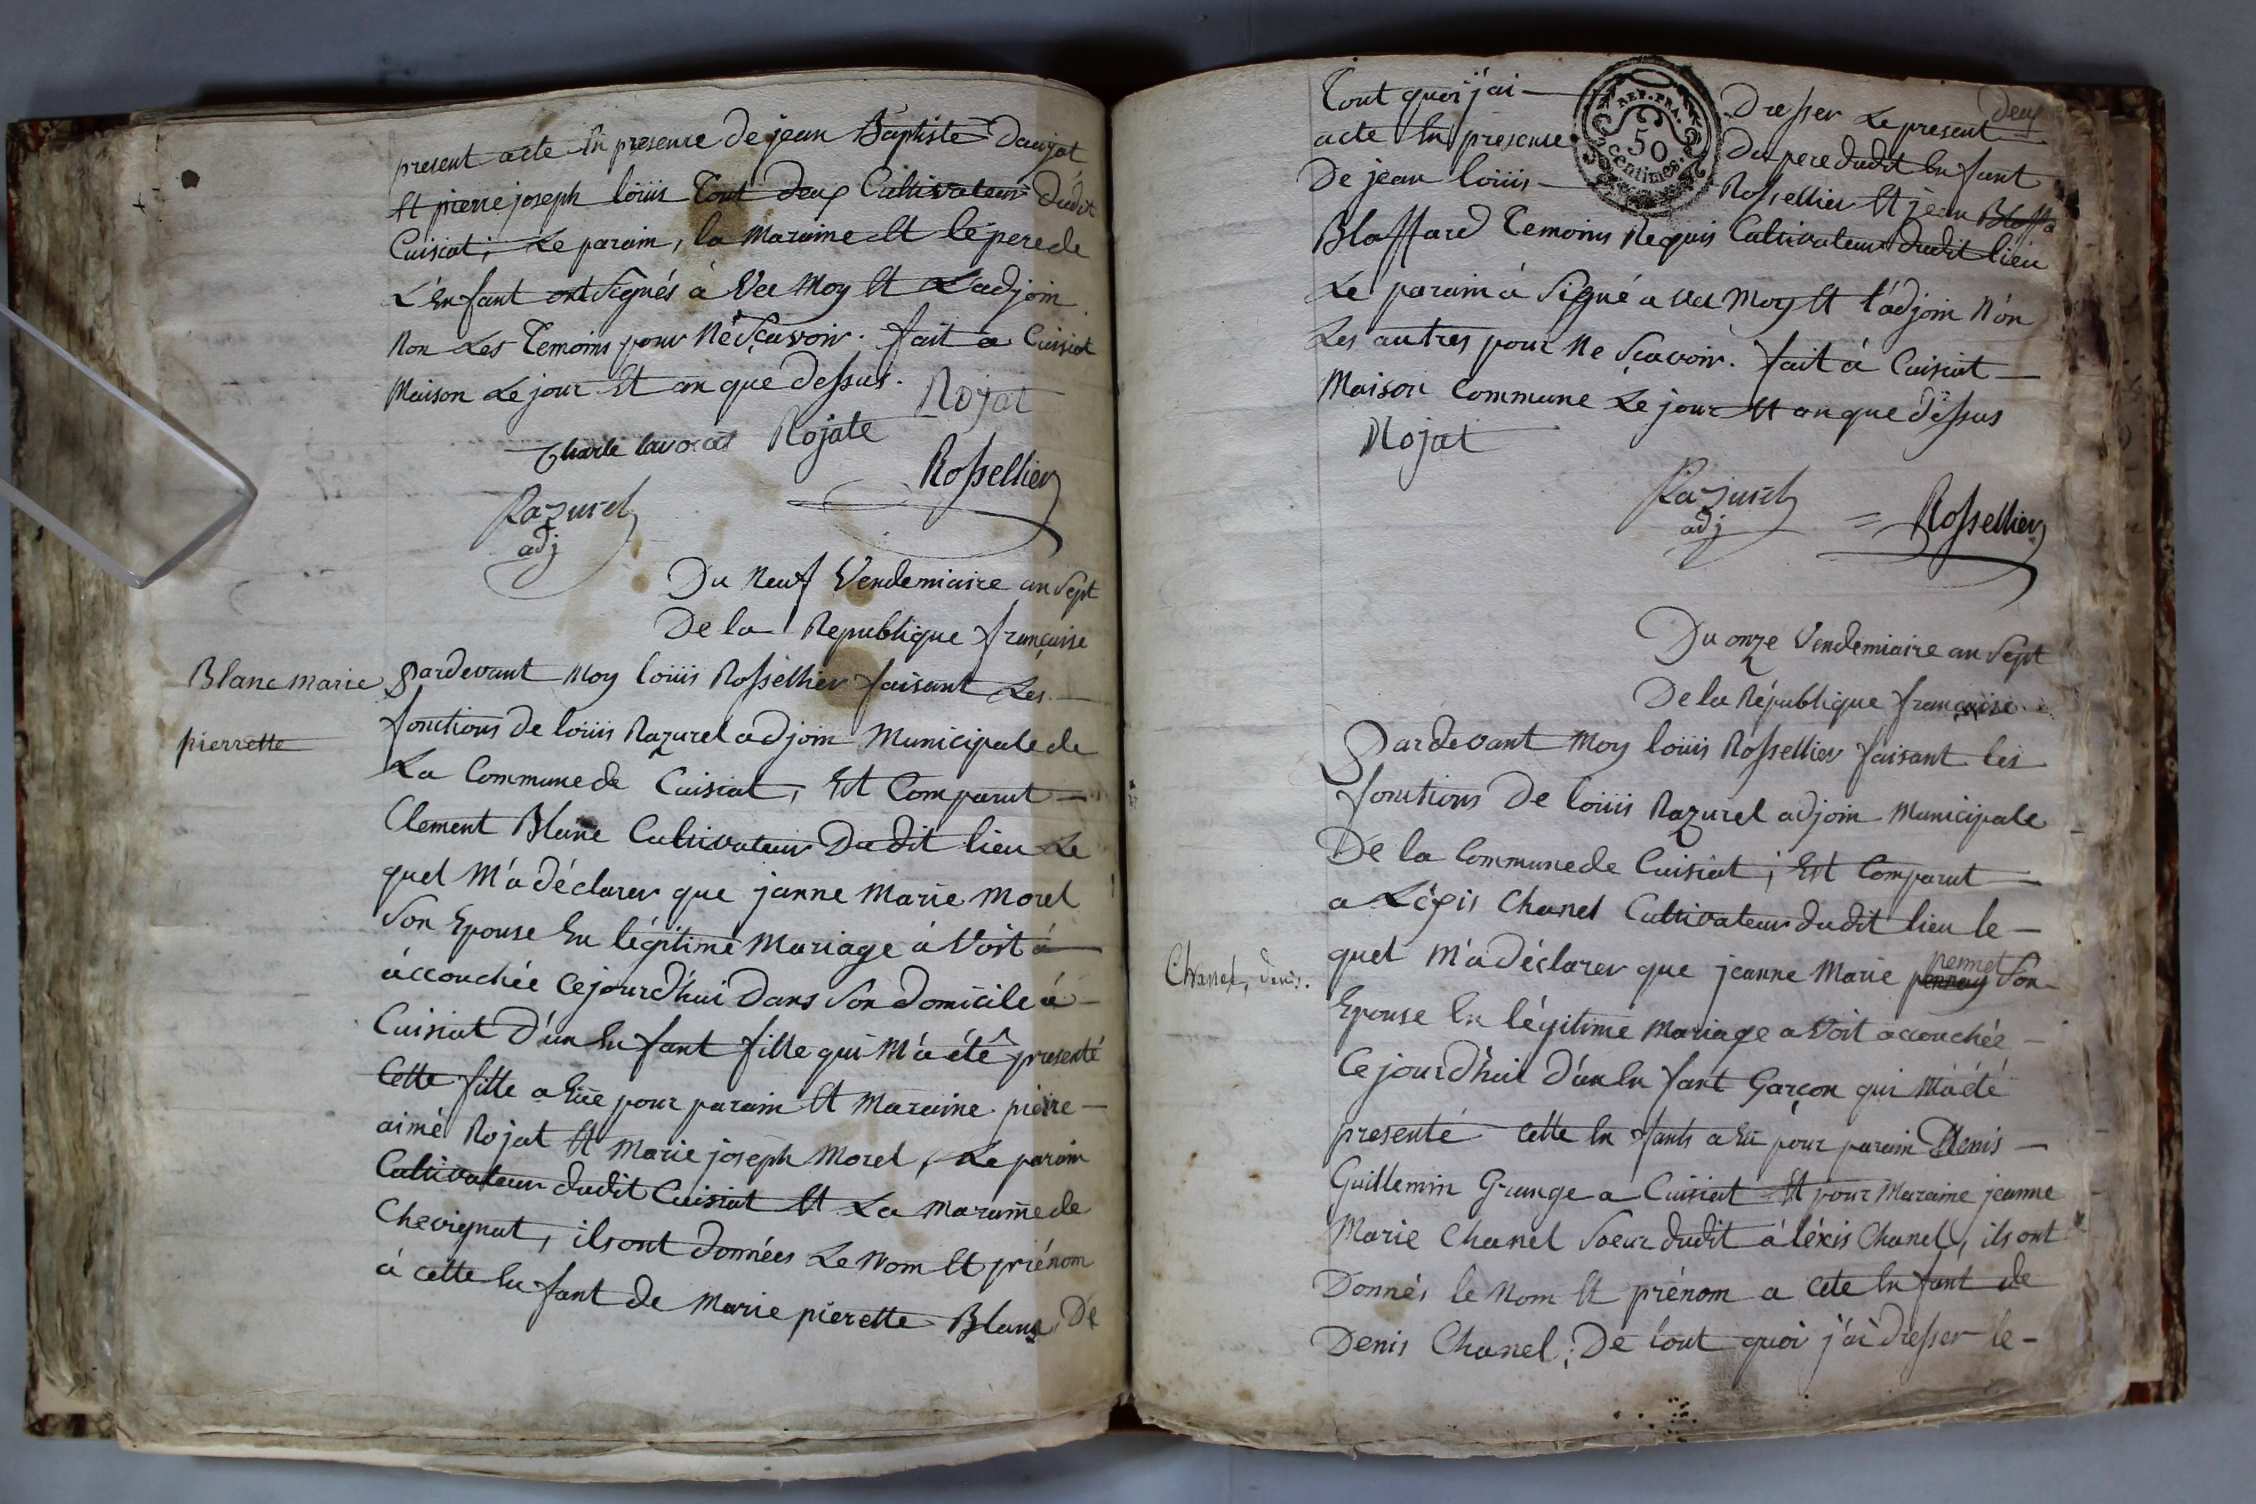 present acte En presence de jean Baptiste Daujat
Et pierre joseph loüis Tout deux Cultivateur dudit
Cuisiat; Le parain, la Maraine Et le pere de
L'Enfant ont signés à Vec Moy Et L'adjoin
Non Les Temoins pour Né Sçavoir. fait a Cuisiat
Maison Le jour Et an que dessus. Rojat
Charle lavocat Rojate
Rossellier
Razurel
adj
Du Neuf Vendemiaire an Sept
De la Republique française
Blanc marie
pierrette
Pardevant Moy loüis Rossellier faisant Les
fonctions de loüis Razurel adjoin Municipale de
La Commune de Cuisiat, Est Comparut
Clement Blanc Cultivateur Dudit lieu Le
quel M'a déclarer que janne Marie Morel
Son Epouse En légitime Mariage à Voit à
àccouchée Cejourd'hui Dans Son domicile à
Cuisiat D'un Enfant fille qui M'a été presenté
Cette fille a Eüe pour parain Et Maraine pierre
aimé Rojat Et Marie joseph Morel, Le parain
Cultivateur dudit Cuisiat Et La Maraine de
Chevignat, ils ont données Le Nom Et prénom
à cette Enfant de Marie pierette Blanc, De
deux
Tout quoi j'ai Dresser Le present
REP. FRA.
50
centimes.
acte En presence Du pere dudit Enfant
De jean loüis Rossellier Et jean Blaffa
Blaffard Temoins Requis Cultivateur dudit lieu
Le parain à Signé a Vec Moy Et l'adjoin Non
Les autres pour Ne Sçavoir. fait à Cuisiat
Maison Commune Le jour Et an que Dessus
Rojat
Razurel
adj
Rossellier
Du onze Vendemiaire an Sept
De la République française
Pardevant Moy loüis Rossellier faisant les
fonctions De loüis Razurel adjoin Municipale
De la Commune de Cuisiat; Est Comparut
a Léxis Chanel Cultivateur dudit lieu le
Chanel, denis.
quel M'a déclarer que jeanne Marie pennet Son
Epouse En légitime Mariage a Voit accouchée
Cejourd'hui d'un Enfant Garçon qui M'a été
presenté cette Enfants a Eü pour parain Denis
Guillemin Grange a Cuisiat Et pour Maraine jeanne
Marie Chanel Soeur dudit àléxis Chanel, ils ont
Donnés le Nom Et prénom a cete Enfant de
Denis Chanel; De tout quoi j'ai dresser le